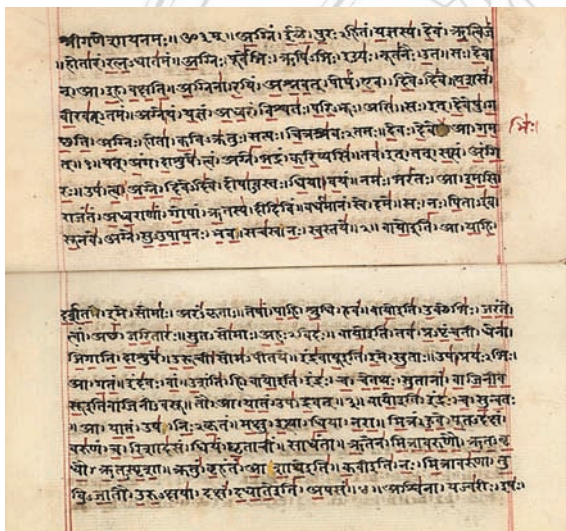 श्रीगणेशायनमः॥ॐ३म्॥अग्निं।ईळे।पुरःऽहितं।यज्ञस्य।देवं।ऋत्विजं
॥होतारं।रत्नऽधातमं॥अग्निः।पूर्वेभिः।ऋषिऽभिः।ईड्यः।नूतनैः।उत।सः।देवा
न्।आ।इह।वक्षति॥अग्निना।रयिं।अश्नवत्।पोषं।एव।दिवेऽदिवे।यशसं।
वीरवत्ऽतमं॥अग्ने।यं।यज्ञं।अध्वरं।विश्वतः।परिऽभूः।असि।सः।इत्।देवेषु।ग
च्छति॥अग्निः।होता।कविऽक्रतुः।सत्यः।चित्रश्रवःऽतमः।देवः।देवे।आ।गम भिः।
त्॥१॥यत्।अंग।दाशुषे।त्वं।अग्ने।भद्रं।करिष्यसि।तव।इत्।तत्।सत्यं।अंगि
रः॥उप।त्वा।अग्ने।दिवेऽदिवे।दोषाऽवस्तः।धिया।वयं।नमः।भरंतः।आ।इमसि
राजंतं।अध्वराणां।गोपां।ऋतस्य।दीदिविं।वर्धमानं।स्वे।दमे॥सः।नः।पिताऽइव
सूनवे।अग्ने।सुऽउपायनः।भव।सचस्व।नः।स्वस्तये॥२॥वायोइति।आ।याहि।
दर्शत।इमे।सोमाः।अरंऽकृताः।तेषां।पाहि।श्रुधि।हवं॥वायोइति।उक्थेभिः।जरंते
त्वां।अच्छ।जरितारः।सुतऽसोमाः।अहःऽविदः॥वायोइति।तव।प्रऽपृंचती।धेना।
जिगाति।दाशुषे।उरूची।सोमऽपीतये॥इंद्रवायूइति।इमे।सुताः।उप।प्रयःऽभिः।
आ।गतं।इंदवः।वां।उशंति।हि॥वायोइति।इंद्रः।च।चेतथः।सुतानां।वाजिनीव
सूइतिवाजिनीऽवसू।तौ।आ।यातं।उप।द्रवत्॥३॥वायोइति।इंद्रः।च।सुन्वतः
।आ।यातं।उप।निःऽकृतं।मक्षु।इत्था।धिया।नरा॥मित्रं।हुवे।पूतऽदक्षं।
वरुणं।च।रिशादसं।धियं।घृताचीं।साधंता॥ऋतेन।मित्रावरुणौ।ऋतऽवृ
धौ।ऋतऽस्पृशा।क्रतुं।बृहंतं।आशाथेइति॥कवीइति।नः।मित्रावरुणा।तु
विऽजातौ।उरुऽक्षया।दक्षं।दधातेइति।अपसं॥४॥अश्विना।यज्वरीः।इषः।